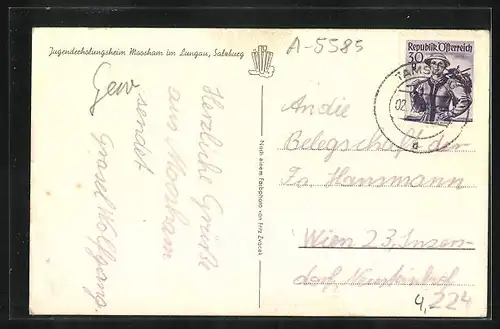 Jugenderholungsheim Moosham im Lungau, Salzburg
A-5585
Republik Österreich
30
TAMS
02.
d
Herzliche Grüße
aus Moosham
sendet
Wolfgang
Nach einem Farbphoto von Fritz Zvacek
An die
Belegschaft der
Fa Hansmann
Wien 23, Inzers-
dorf,
4,224